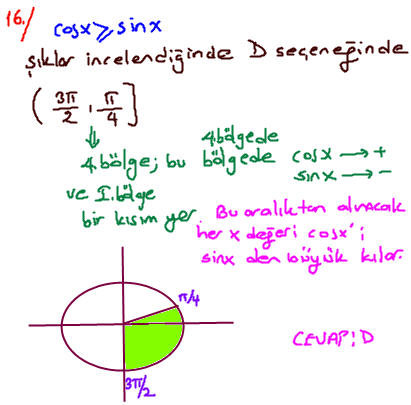 16./
cosx ⩾ sinx
şıklar incelendiğinde D seçeneğinde
( 3π/2 , π/4 ]
⇓
4.bölgede
4.bölge; bu bölgede cosx → +
sinx → −
ve I.bölge
bir kısım yer.
Bu aralıktan alınacak
her x değeri cosx'i
sinx den büyük kılar.
π/4
3π/2
CEVAP: D